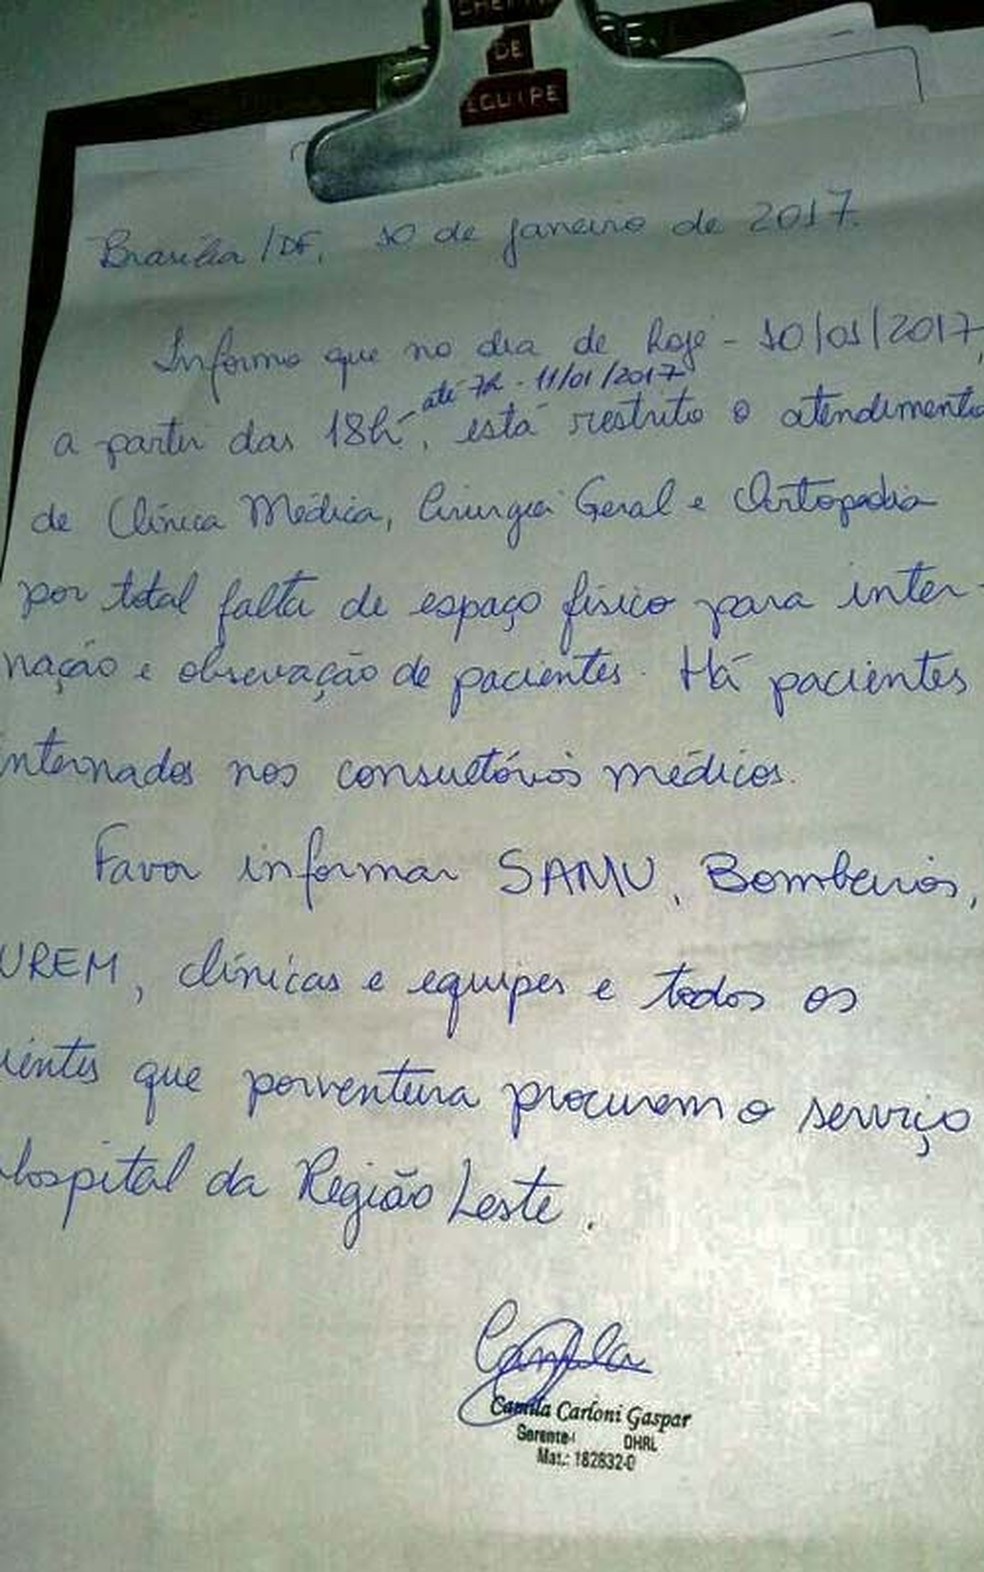 DE
EQUIPE
Brasília/DF, 10 de janeiro de 2017.
Informo que no dia de hoje - 10/01/2017,
até 7h - 11/01/2017
a partir das 18h, está restrito o atendimento
de Clínica Médica, Cirurgia Geral e Ortopedia
por total falta de espaço físico para inter-
nação e observação de pacientes. Há pacientes
internados nos consultórios médicos.
Favor informar SAMU, Bombeiros,
UREM, clínicas e equipes e todos os
ientes que porventura procurem o serviço
Hospital da Região Leste.
Camila
Camila Carloni Gaspar
Gerente DHRL
Mat.: 182832-0